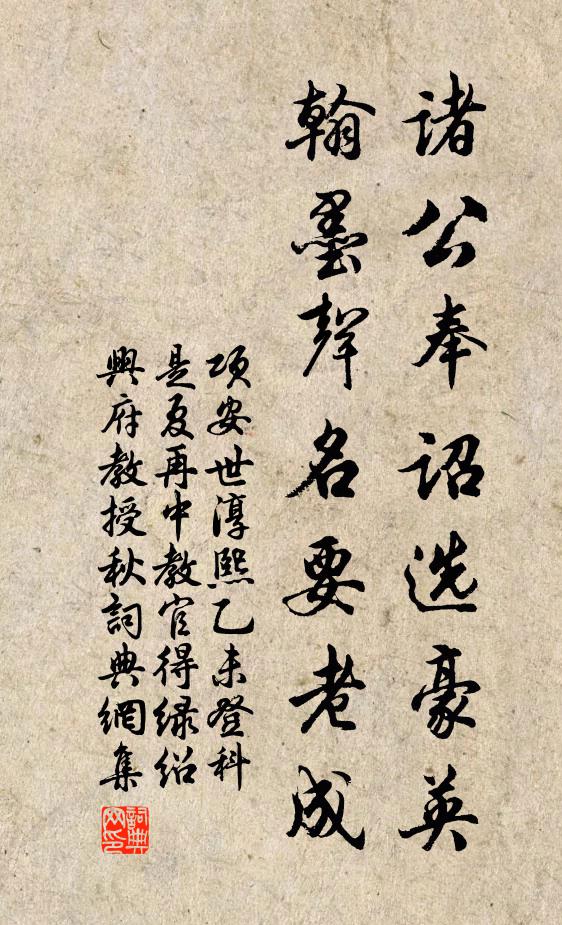 诸公奉诏选豪英
翰墨聲名要老成
项安世淳熙乙未登科
是夏再中教官得绿绍
興府教授秋詞典網集
詞典
网印